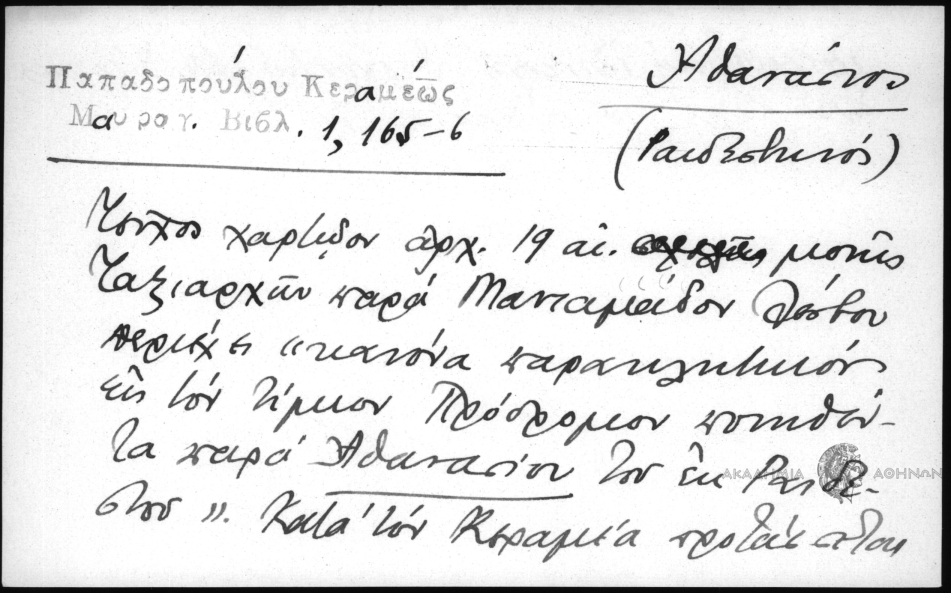 Παπαδοπούλου Κεραμέως
Μαυρογ. Βιβλ. 1, 165-6
Ἀθανάσιος
(Ραιδεστινός)
Τεῦχος χαρτῶον ἀρχ. 19 αἰ. μονῆς
Ταξιαρχῶν παρά Μανταμάδον Λέσβου
περιέχει "κανόνα παρακλητικόν
εἰς τόν τίμιον Πρόδρομον ποιηθέν-
τα παρά Ἀθανασίου τοῦ ἐκ Ραιδε-
στοῦ". Κατά τόν Κεραμέα προτάσσεται
ΑΚΑΔΗΜΙΑ ΑΘΗΝΩΝ